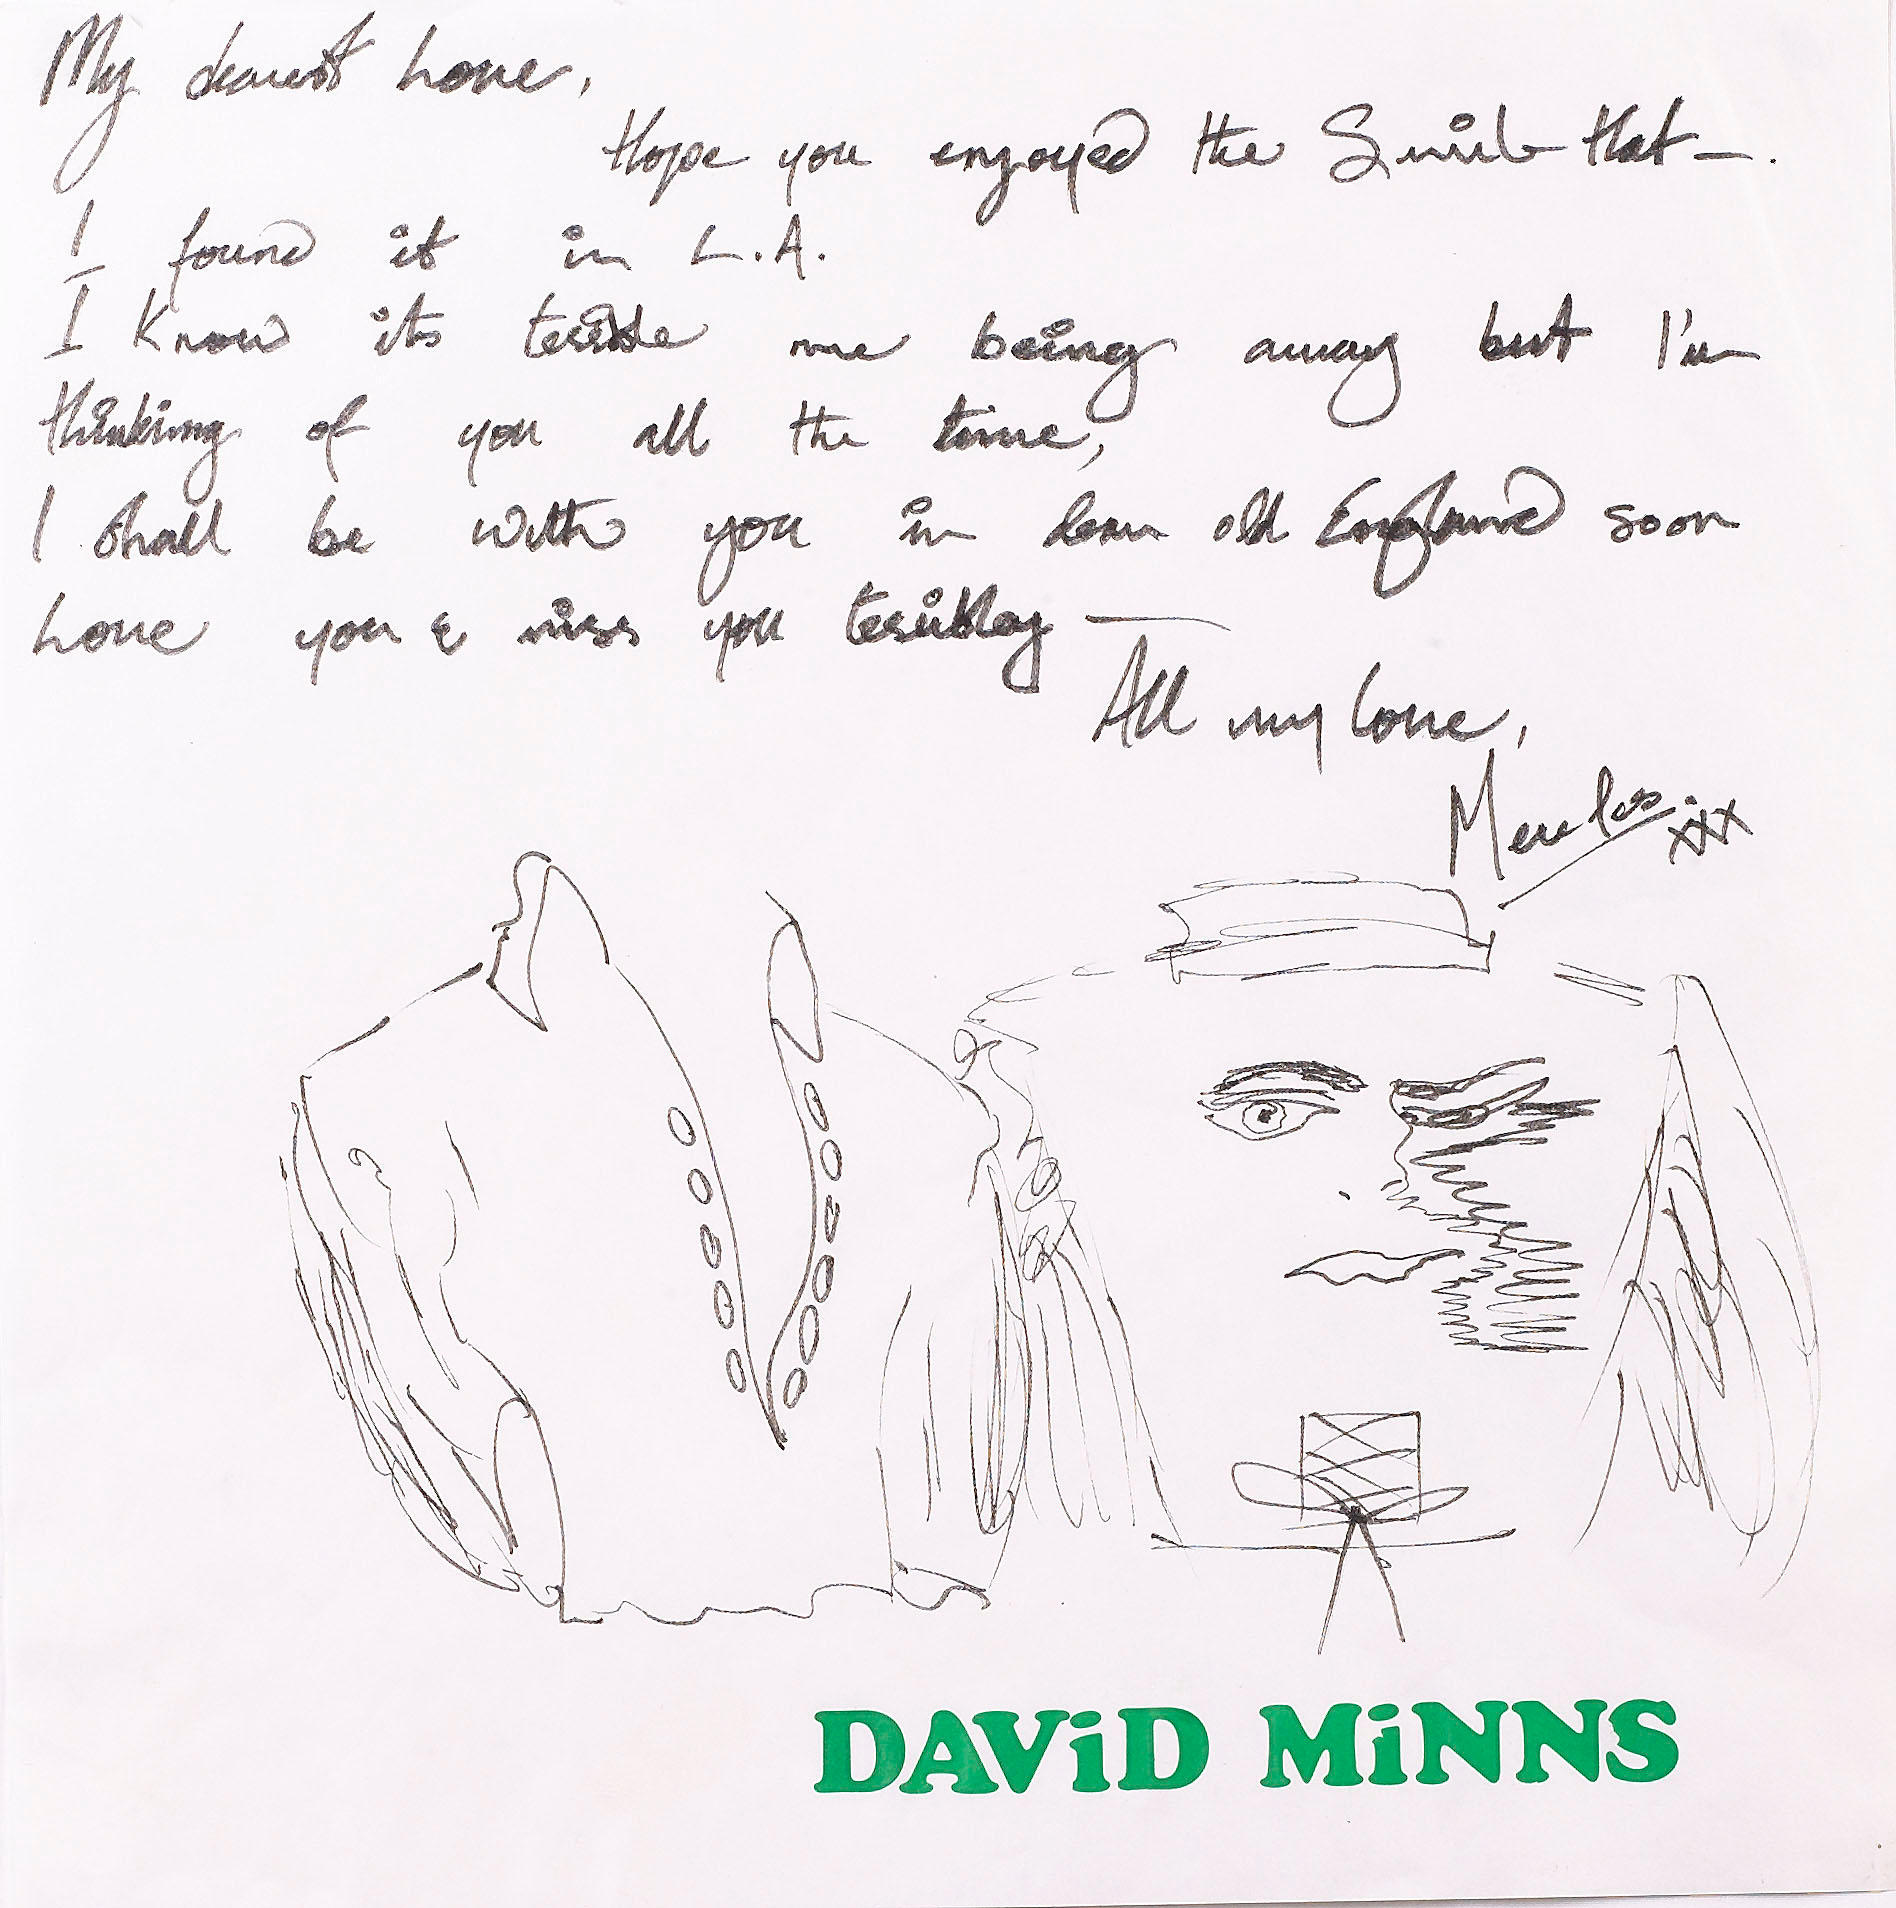 My dearest Love,
Hope you enjoyed the
I found it in L.A.
I know its terrible me being away but I'm
thinking of you all the time,
I shall be with you in dear old England soon
Love you & miss you terribley —
All my love,
xxx
DAViD MiNNS